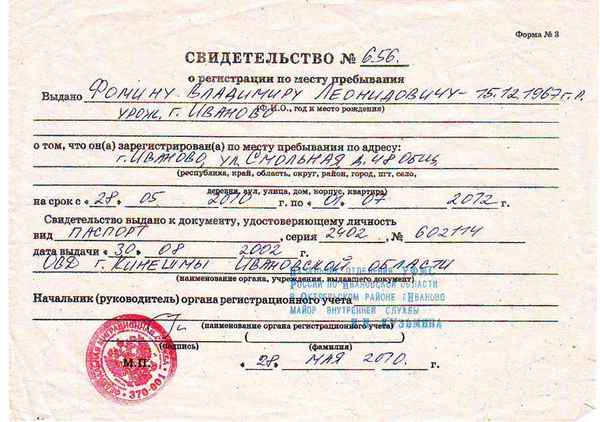 Форма № 3
СВИДЕТЕЛЬСТВО № 656.
о регистрации по месту пребывания
Выдано Фомину Владимиру Леонидовичу - 15.12.1967 г.р.
(Ф.И.О., год и место рождения)
урож. г. Иваново
о том, что он(а) зарегистрирован(а) по месту пребывания по адресу:
г. Иваново, ул. Смольная д. 48 общ
(республика, край, область, округ, район, город, пгт, село,
деревня, аул, улица, дом, корпус, квартира)
на срок с « 28 » 05 2010 г. по « 01 » 07 2012 г.
Свидетельство выдано к документу, удостоверяющему личность
вид ПАСПОРТ, серия 2402, № 602114
дата выдачи « 30 » 08 2002 г.
ОВД г. Кинешмы Ивановской области
(наименование органа, учреждения, выдавшего документ)
УФМС
России по Ивановской области
в Октябрьском районе г.Иваново
Начальник (руководитель) органа регистрационного учета
майор внутренней службы
(наименование органа регистрационного учета)
Кузьмина
(подпись) (фамилия)
М.П.
« 28 » мая 2010. г.
370-001